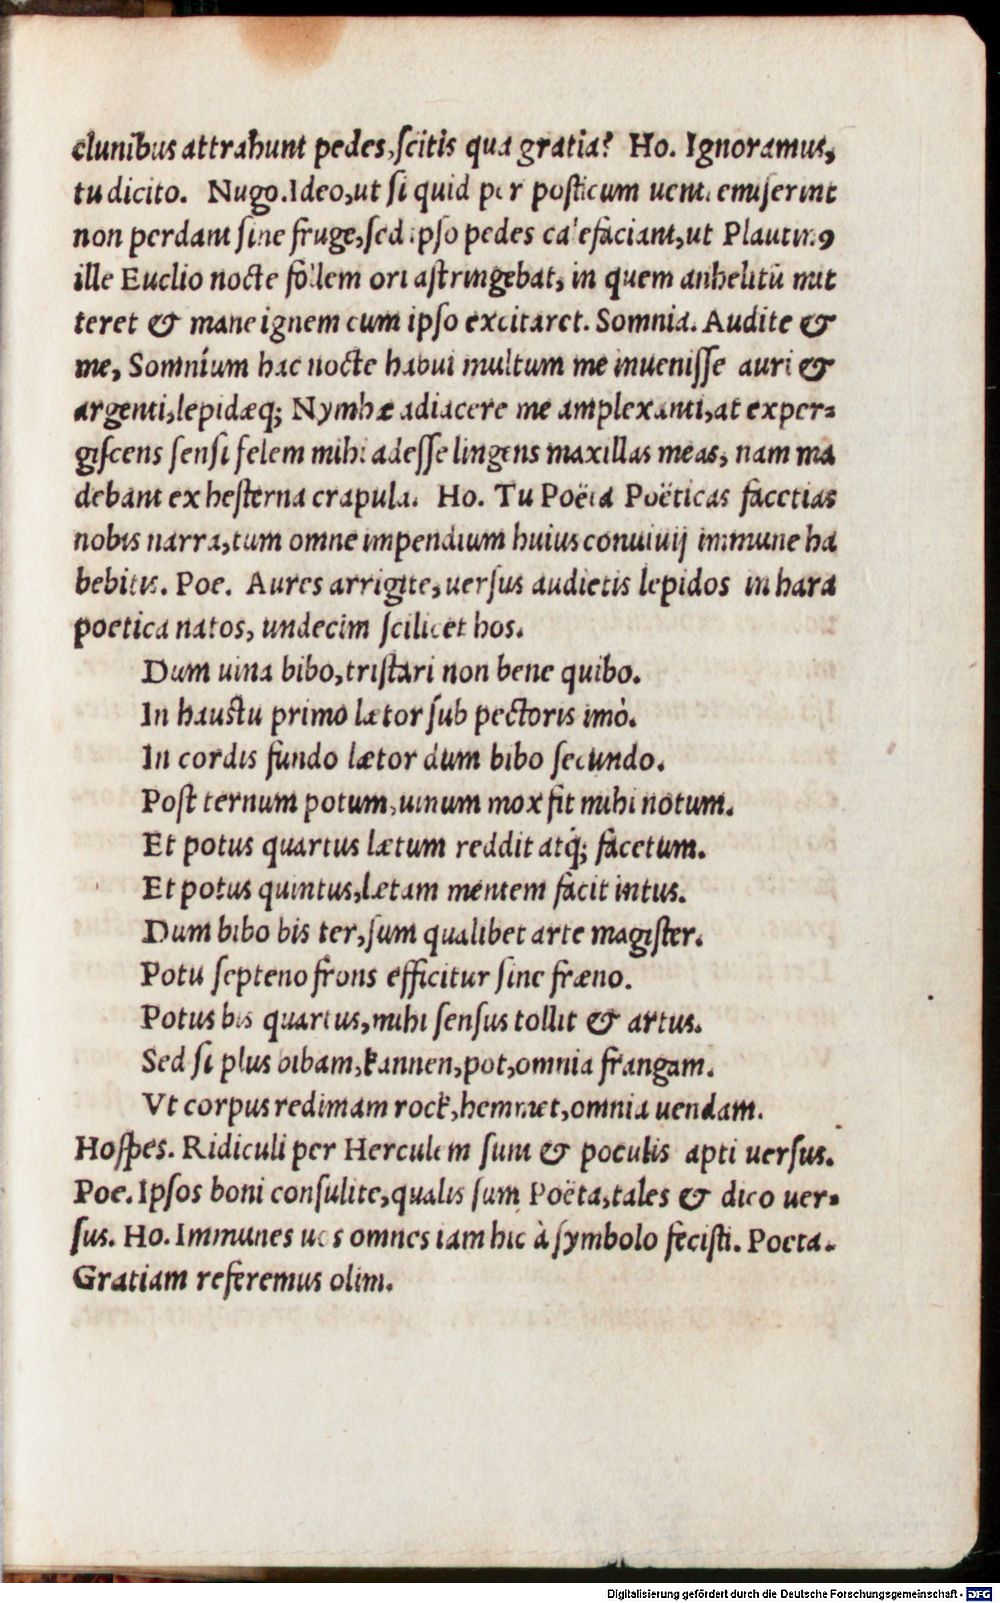 clunibus attrahunt pedes, scitis qua gratia? Ho. Ignoramus,
tu dicito. Nugo. Ideo, ut si quid per posticum uenti emiserint
non perdant sine fruge, sed ipso pedes calefaciant, ut Plautinꝰ
ille Euclio nocte follem ori astringebat, in quem anhelitũ mit
teret & mane ignem cum ipso excitaret. Somnia. Audite &
me, Somnium hac nocte habui multum me inuenisse auri &
argenti, lepidæq; Nymhæ adiacere me amplexanti, at exper-
giscens sensi felem mihi adesse lingens maxillas meas, nam ma
debant ex hesterna crapula. Ho. Tu Poëta Poëticas facetias
nobis narra, tum omne impendium huius conuiuij immune ha
bebitis. Poe. Aures arrigite, uersus audietis lepidos in hara
poetica natos, undecim scilicet hos.
Dum uina bibo, tristari non bene quibo.
In haustu primo lætor sub pectoris imò.
In cordis fundo lætor dum bibo secundo.
Post ternum potum, uinum mox fit mihi notum.
Et potus quartus lætum reddit atq; facetum.
Et potus quintus, lætam mentem facit intus.
Dum bibo bis ter, sum qualibet arte magister.
Potu septeno frons efficitur sine fræno.
Potus bis quartus, mihi sensus tollit & artus.
Sed si plus bibam, kannen, pot, omnia frangam.
Vt corpus redimam rock, hemmet, omnia uendam.
Hospes. Ridiculi per Herculem sunt & poculis apti uersus.
Poe. Ipsos boni consulite, qualis sum Poëta, tales & dico uer-
sus. Ho. Immunes uos omnes iam hic à symbolo fecisti. Poeta.
Gratiam referemus olim.
Digitalisierung gefördert durch die Deutsche Forschungsgemeinschaft - DFG